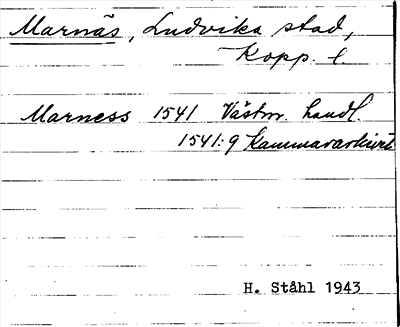 Marnäs, Ludvika stad,
Kopp. l
Marness 1541 Västm. handl.
1541:9 Kammararkivet
H. Ståhl 1943